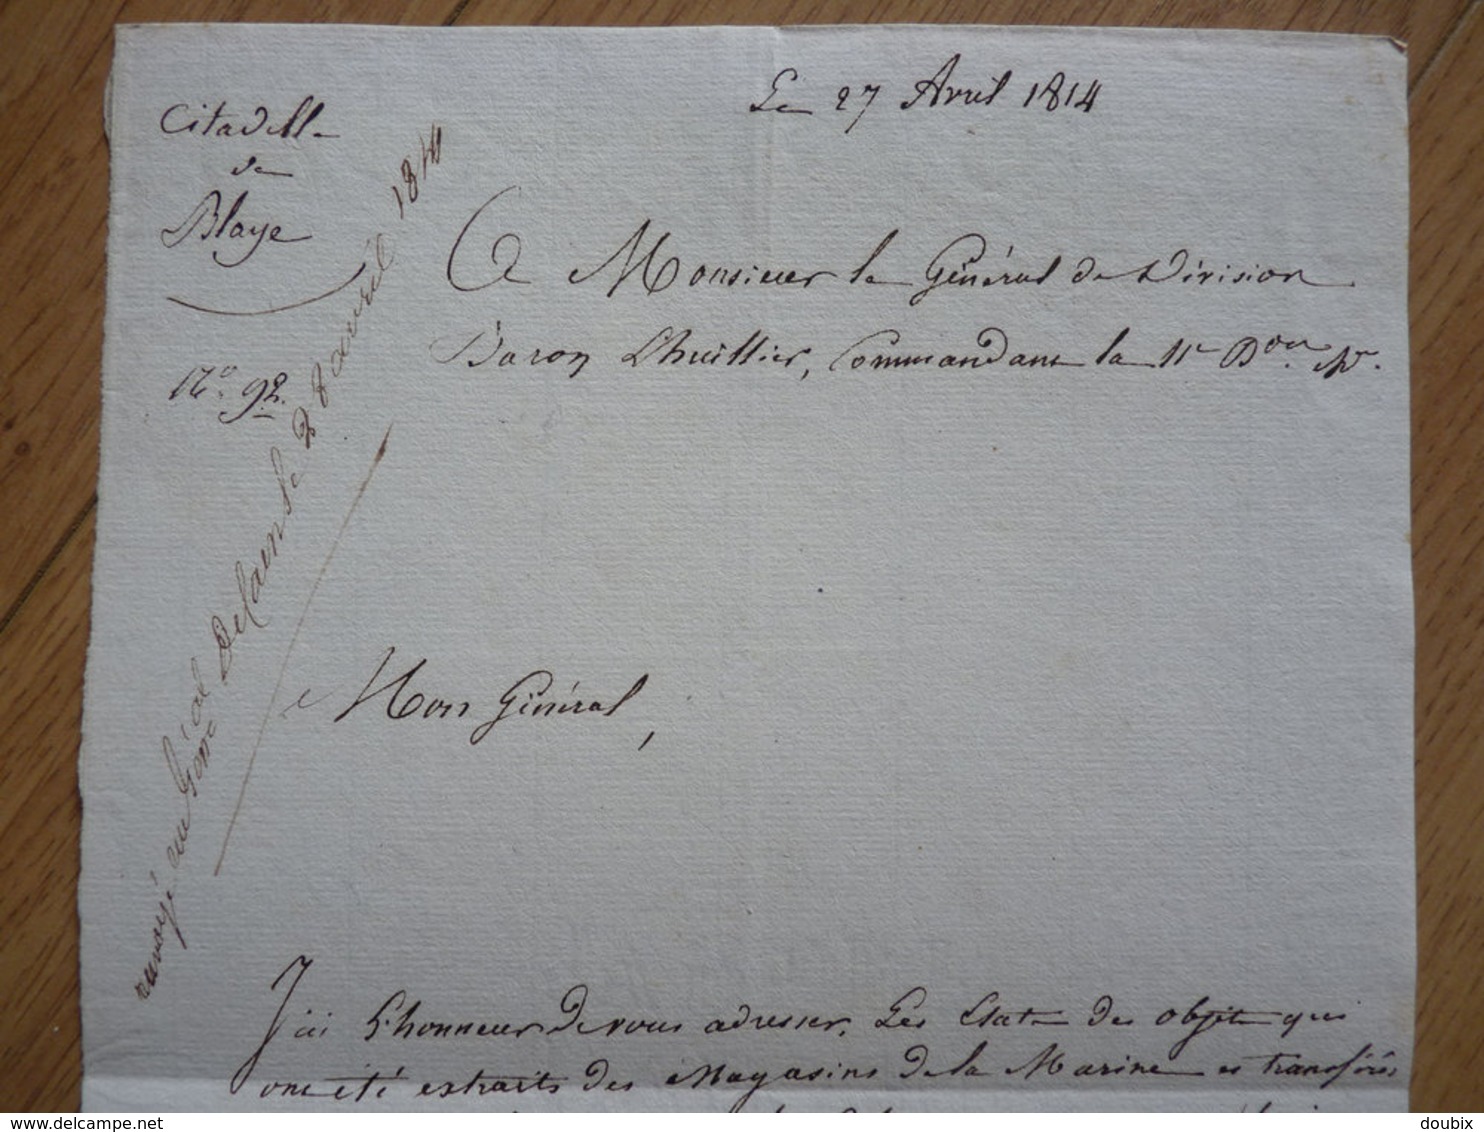 Le 27 Avril 1814
Citadelle
de
Blaye
N.° 92.
A Monsieur le Général de Division
Baron Lhuillier, Commandant la 11e Don. Mre.
envoyé au Génal Delaens le 28 avril 1814
Mon Général,
J'ai l'honneur de vous adresser, les Etats des objets qui
ont été extraits des Magasins de la Marine et transférés
delcampe.net
doubix